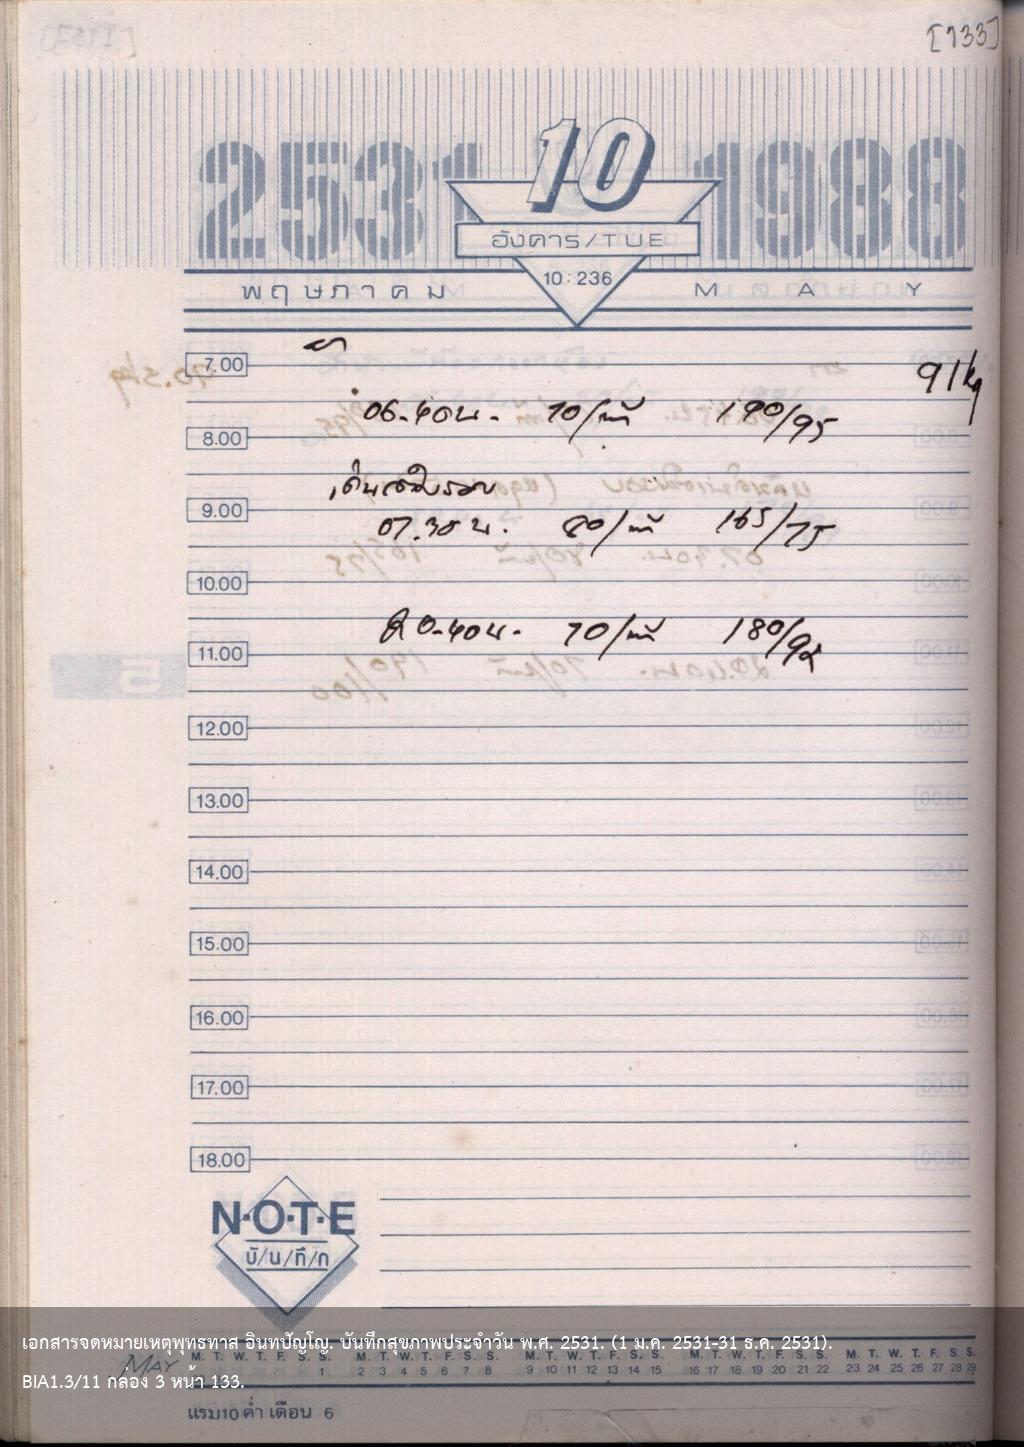 [133]
2531 10 1988
อังคาร/TUE
10:236
พฤษภาคม MAY
7.00
ยา
91 kg
06.40น. 70/นาที 190/95
8.00
เดินเสร็จรอบ
9.00
07.30น. 80/นาที 165/75
10.00
20.40น. 70/นาที 180/95
11.00
12.00
13.00
14.00
15.00
16.00
17.00
18.00
N·O·T·E
บั/น/ทึ/ก
เอกสารจดหมายเหตุพุทธทาส อินทปัญโญ. บันทึกสุขภาพประจำวัน พ.ศ. 2531. (1 ม.ค. 2531-31 ธ.ค. 2531).
MAY M. T. W. T. F. S. S. M. T. W. T. F. S. S. M. T. W. T. F. S. S. M. T. W. T. F. S. S. M. T. W. T. F. S. S.
1 2 3 4 5 6 7 8 9 10 11 12 13 14 15 16 17 18 19 20 21 22 23 24 25 26 27 28 29
BIA1.3/11 กล่อง 3 หน้า 133.
แรม10 ค่ำ เดือน 6